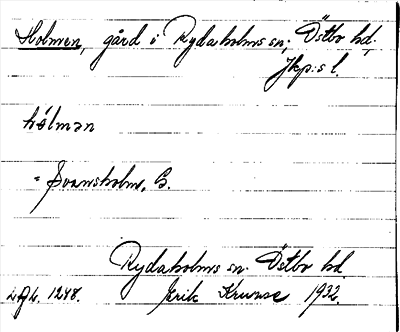 Holmen, gård i Rydaholms sn, Östbo hd,
Jkp:s l.
hólmən
= Svansholm, B.
Rydaholms sn Östbo hd
1248. Erik Kruuse 1932.